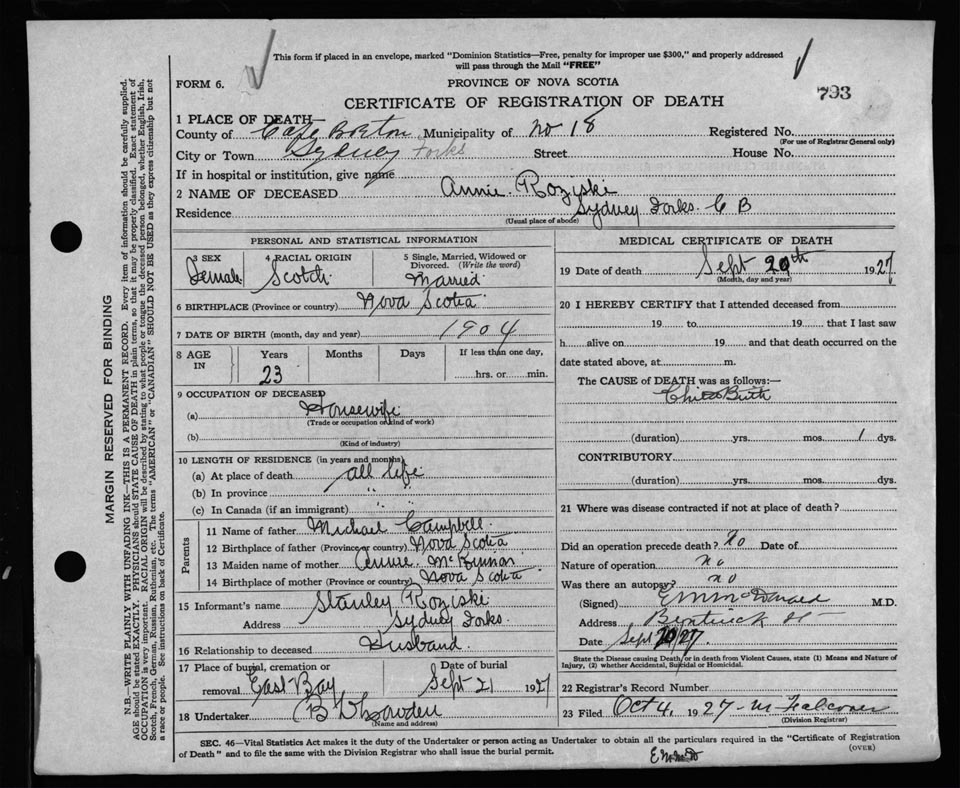 This form if placed in an envelope, marked "Dominion Statistics—Free, penalty for improper use $300," and properly addressed
will pass through the Mail "FREE"
FORM 6.
PROVINCE OF NOVA SCOTIA
CERTIFICATE OF REGISTRATION OF DEATH
793
1 PLACE OF DEATH—
County of Cape Breton Municipality of No 18 Registered No.
(For use of Registrar General only)
City or Town Sydney Forks Street House No.
If in hospital or institution, give name
2 NAME OF DECEASED Annie Roziski
Residence Sydney Forks. C B
(Usual place of abode)
PERSONAL AND STATISTICAL INFORMATION
3 SEX Female
4 RACIAL ORIGIN Scotch
5 Single, Married, Widowed or Divorced. (Write the word) Married
6 BIRTHPLACE (Province or country) Nova Scotia
7 DATE OF BIRTH (month, day and year) 1904
8 AGE IN Years Months Days If less than one day,
23 hrs. or min.
9 OCCUPATION OF DECEASED
(a) Housewife
(Trade or occupation or kind of work)
(b)
(Kind of industry)
10 LENGTH OF RESIDENCE (in years and months)
(a) At place of death all life
(b) In province " "
(c) In Canada (if an immigrant) " "
Parents
11 Name of father Michael Campbell
12 Birthplace of father (Province or country) Nova Scotia
13 Maiden name of mother Annie McKinnon
14 Birthplace of mother (Province or country) Nova Scotia
15 Informant's name Stanley Roziski
Address Sydney Forks
16 Relationship to deceased Husband
17 Place of burial, cremation or removal East Bay
Date of burial Sept 21 1927
18 Undertaker
(Name and address)
MEDICAL CERTIFICATE OF DEATH
19 Date of death Sept 20th 1927
(Month, day and year)
20 I HEREBY CERTIFY that I attended deceased from
19 to 19 that I last saw
h alive on 19 and that death occurred on the
date stated above, at m.
The CAUSE of DEATH was as follows:—
Child Birth
(duration) yrs. mos. 1 dys.
CONTRIBUTORY
(duration) yrs. mos. dys.
21 Where was disease contracted if not at place of death?
Did an operation precede death? No Date of
Nature of operation no
Was there an autopsy? no
(Signed) M.D.
Address
Date Sept 20/27
State the Disease causing Death, or in death from Violent Causes, state (1) Means and Nature of
Injury, (2) whether Accidental, Suicidal or Homicidal.
22 Registrar's Record Number
23 Filed Oct 4, 1927 M Falconer
(Division Registrar)
SEC. 46—Vital Statistics Act makes it the duty of the Undertaker or person acting as Undertaker to obtain all the particulars required in the "Certificate of Registration
of Death" and to file the same with the Division Registrar who shall issue the burial permit.
(OVER)
MARGIN RESERVED FOR BINDING
N.B.—WRITE PLAINLY WITH UNFADING INK—THIS IS A PERMANENT RECORD. Every item of information should be carefully supplied.
AGE should be stated EXACTLY. PHYSICIANS should STATE CAUSE OF DEATH in plain terms, so that it may be properly classified. Exact statement of
OCCUPATION is very important. RACIAL ORIGIN will be described by stating to what people or tongue the deceased person belonged, whether English, Irish,
Scotch, French, German, Russian, Ruthenian, etc. The terms "AMERICAN" or "CANADIAN" SHOULD NOT BE USED as they express citizenship but not
a race or people. See instructions on back of Certificate.